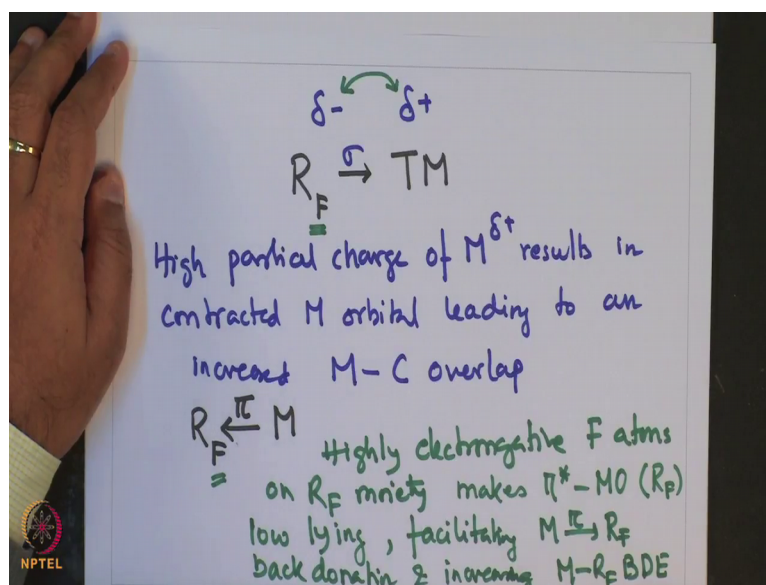 δ- δ+
R_F σ→ TM
High partial charge of M^δ+ results in
contracted M orbital leading to an
increased M-C overlap
R_F ←π M
Highly electronegative F atoms
on R_F moiety makes π*-MO (R_F)
low lying, facilitating M π→ R_F
back donation & increasing M-R_F BDE
NPTEL